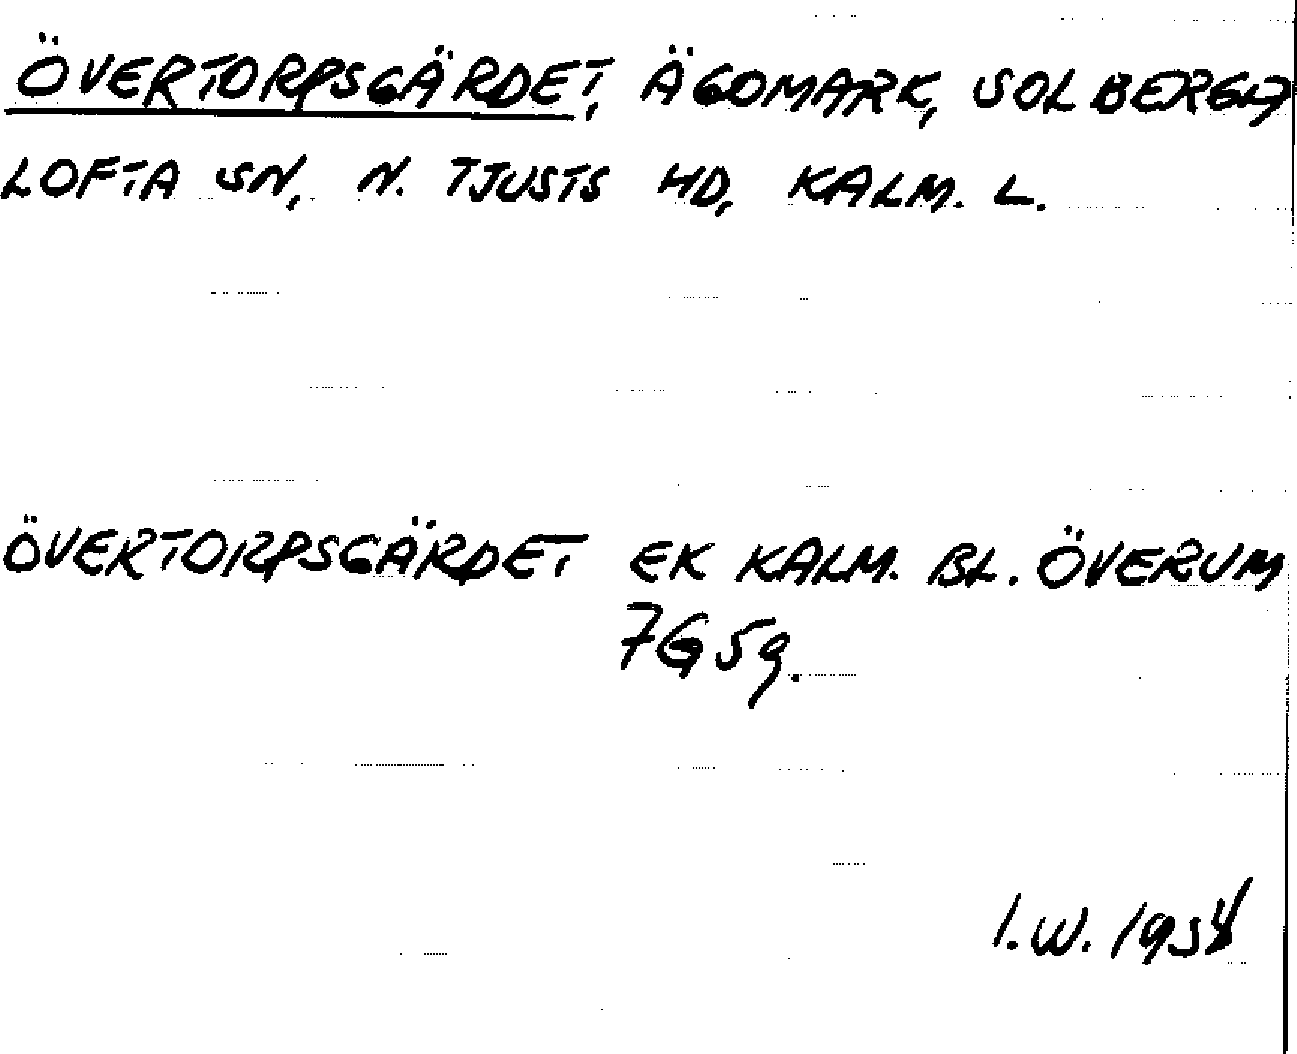 ÖVERTORPSGÄRDET, ÄGOMARK, SOLBERGA
LOFTA SN, N. TJUSTS HD, KALM. L.
ÖVERTORPSGÄRDET EK KALM. BL. ÖVERUM
7G5g.
I.W. 1954